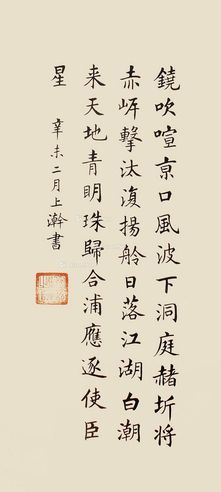 鐃吹喧京口風波下洞庭赭圻將
赤岸擊汰復揚舲日落江湖白潮
来天地青明珠歸合浦應逐使臣
星
辛未二月上澣書